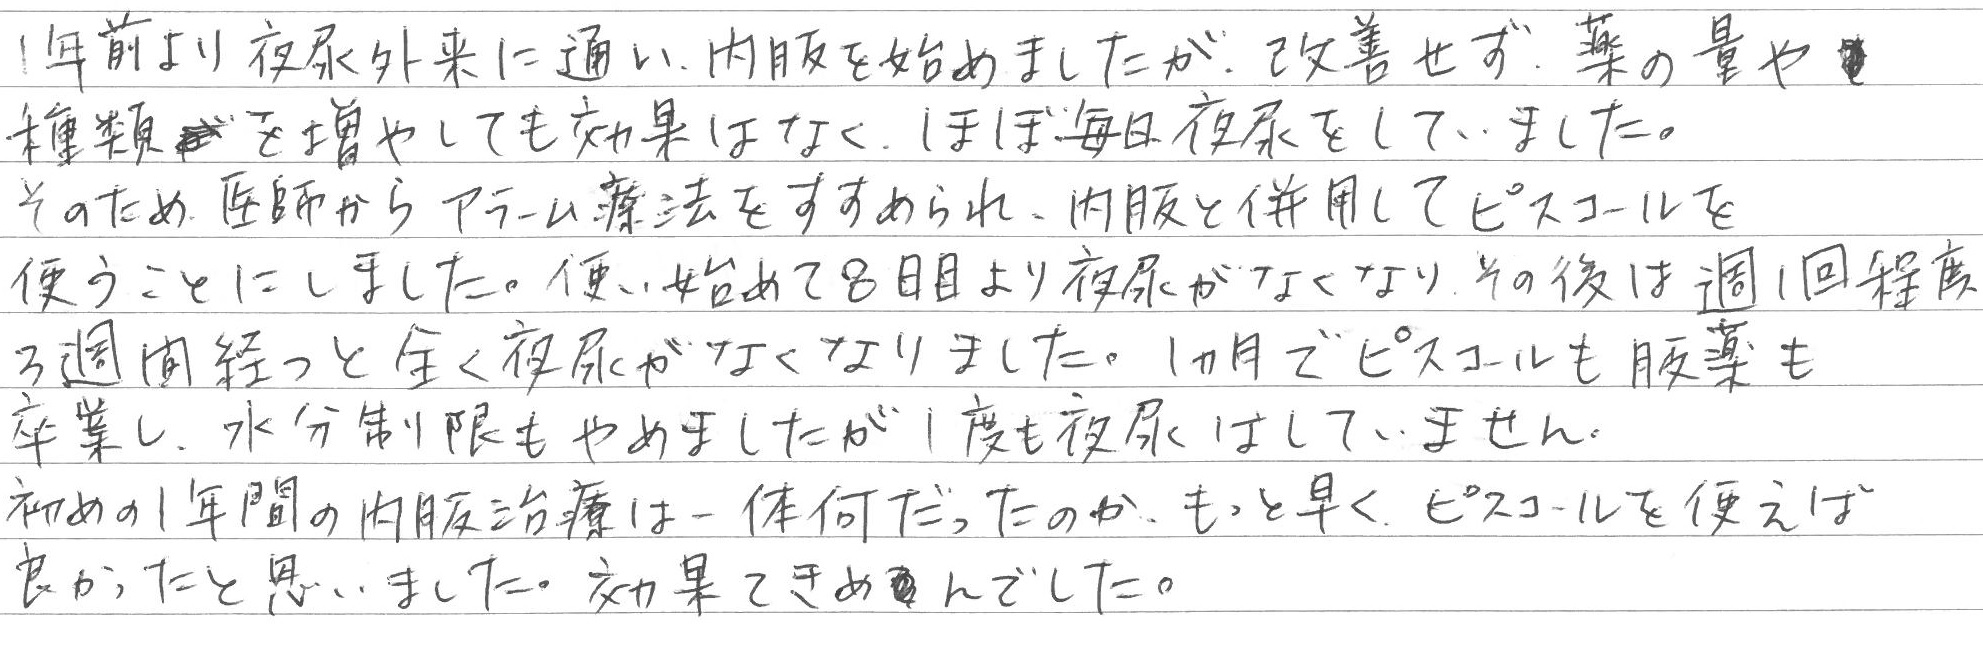 1年前より夜尿外来に通い、内服を始めましたが、改善せず、薬の量や
種類を増やしても効果はなく、ほぼ毎日夜尿をしていました。
そのため、医師からアラーム療法をすすめられ、内服と併用してピスコールを
使うことにしました。使い始めて8日目より夜尿がなくなり、その後は週1回程度
3週間経つと全く夜尿がなくなりました。1ヵ月でピスコールも服薬も
卒業し、水分制限もやめましたが1度も夜尿はしていません。
初めの1年間の内服治療は一体何だったのか、もっと早く、ピスコールを使えば
良かったと思いました。効果てきめんでした。